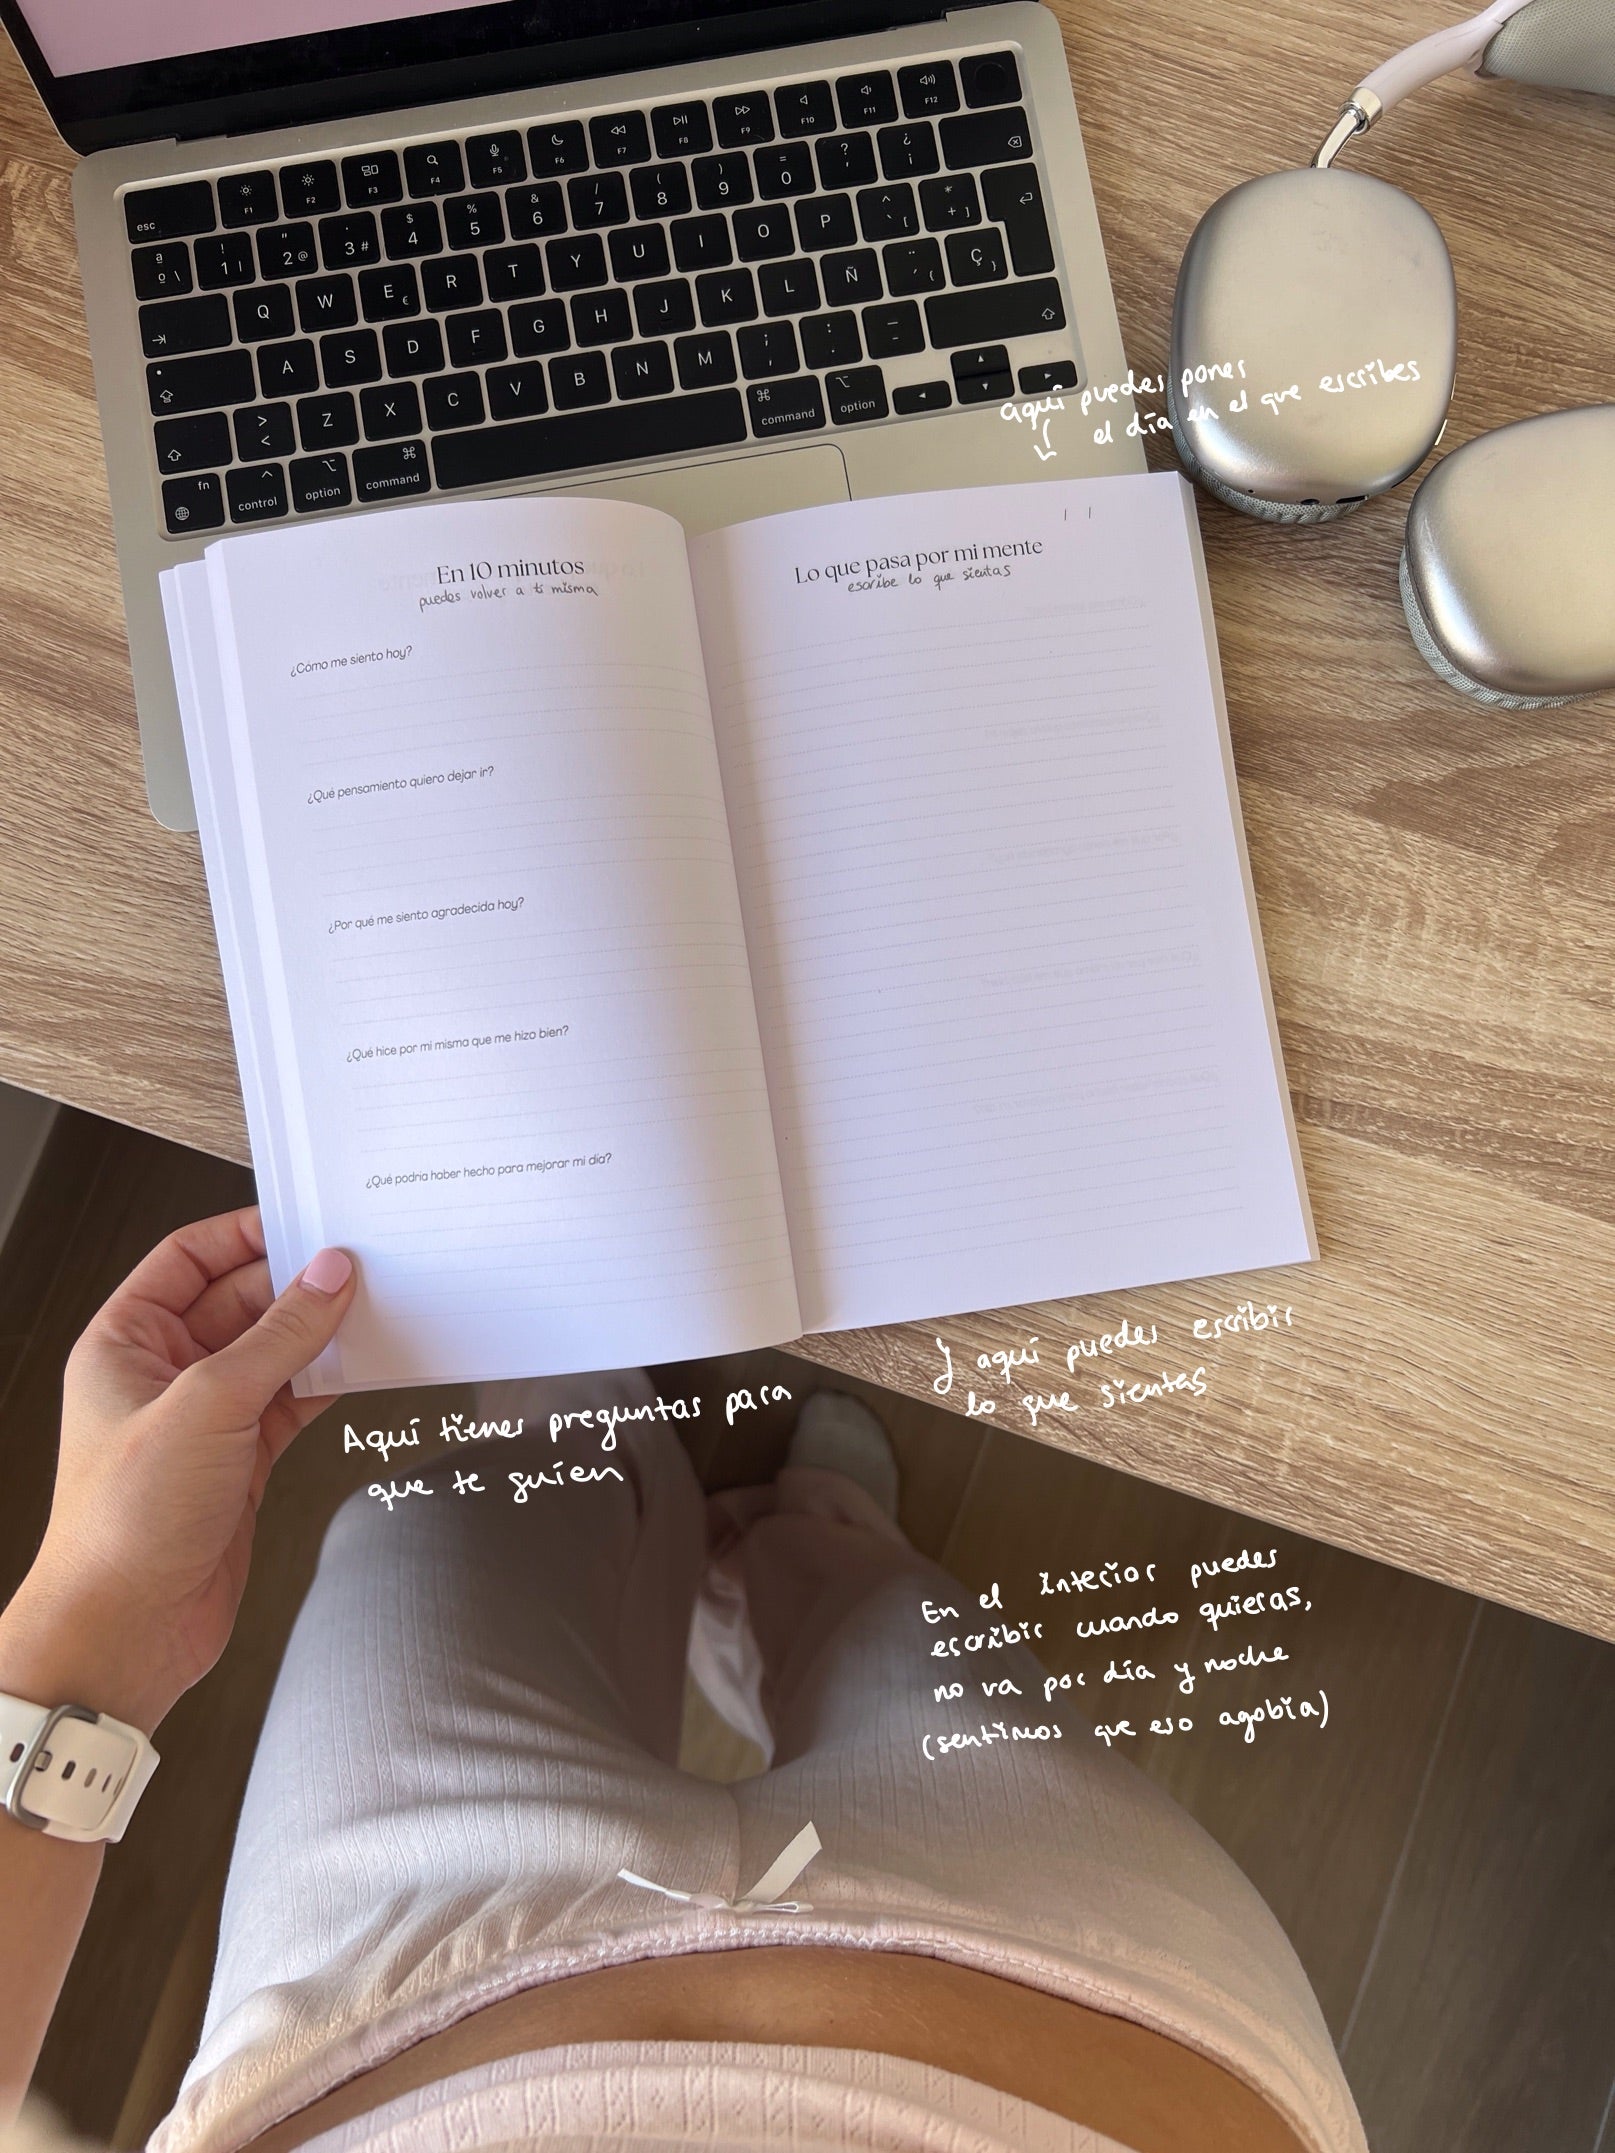 esc
F1
F2
F3
F4
F5
F6
F7
F8
F9
F10
F11
F12
ª º \
! 1 |
" 2 @
· 3 #
$ 4
% 5
& 6
/ 7
( 8
) 9
= 0
? '
¿ ¡
Q W E € R T Y U I O P ^ ` [ * + ]
A S D F G H J K L Ñ ¨ ´ { Ç }
> < Z X C V B N M ; , : . _ -
fn control option command command option
aquí puedes poner
el día en el que escribes
En 10 minutos
puedes volver a ti misma
¿Cómo me siento hoy?
¿Qué pensamiento quiero dejar ir?
¿Por qué me siento agradecida hoy?
¿Qué hice por mi misma que me hizo bien?
¿Qué podria haber hecho para mejorar mi día?
/ /
Lo que pasa por mi mente
escribe lo que sientas
Aquí tienes preguntas para
que te guíen
y aquí puedes escribir
lo que sientas
En el interior puedes
escribir cuando quieras,
no va por día y noche
(sentimos que eso agobia)